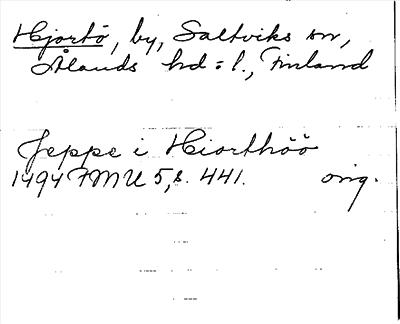 Hjortö, by, Saltviks sn,
Ålands hd = l., Finland
Jeppe i Hiorthöö
1494 FMU 5, s. 441. orig.